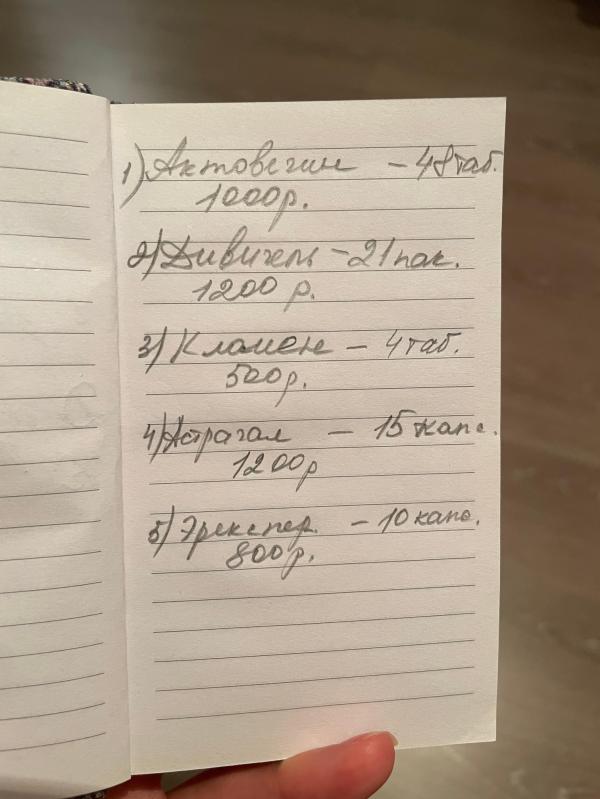 1) Актовегин - 48 таб.
1000р.
2) Дивигель - 21 пак.
1200 р.
3) Кломен - 4 таб.
500р.
4) Астрагал - 15 капс.
1200р
5) - 10 капс.
800р.